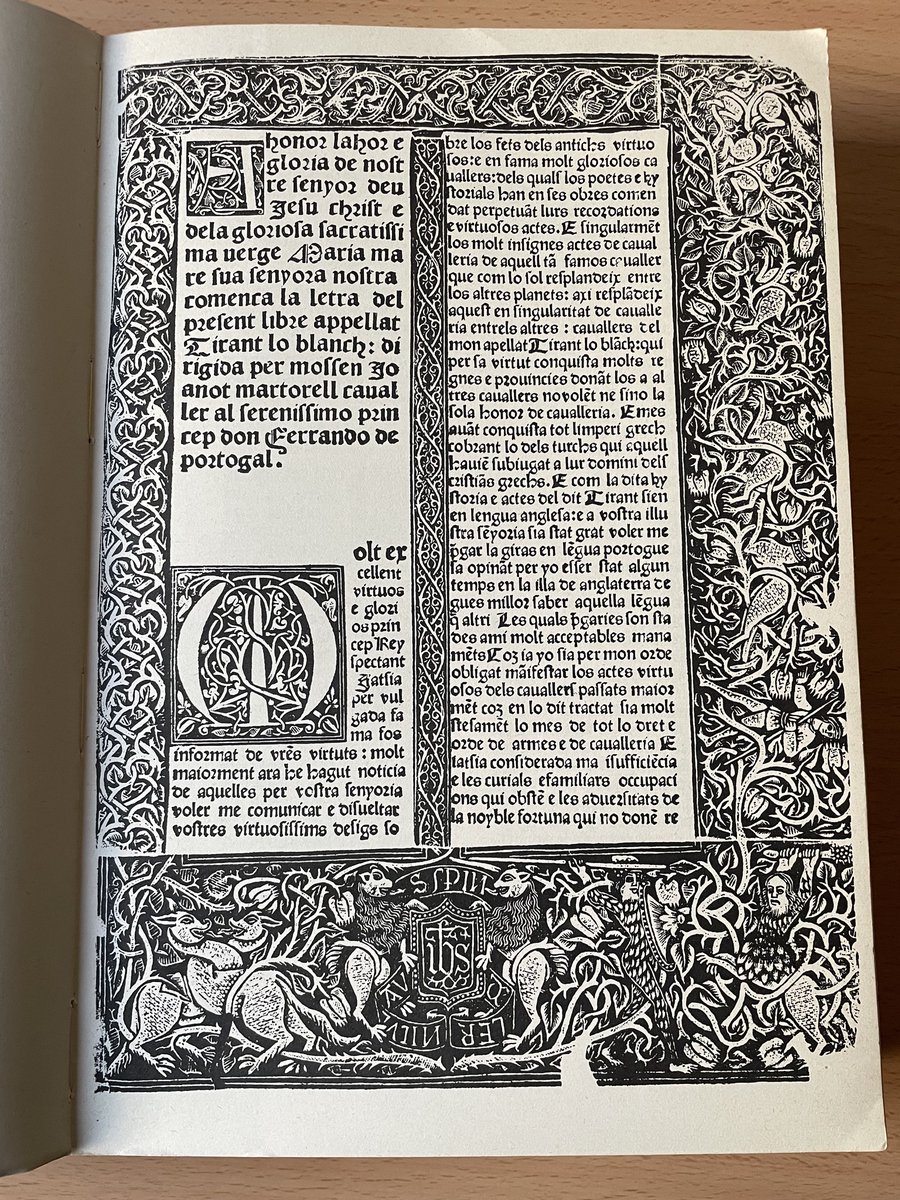 A honor lahor e
gloria de nost
re senyor deu
Jesu christ e
dela gloriosa sacratissi
ma uerge Maria ma
re sua senyora nostra
comenca la letra del
present libre appellat
Tirant lo blanch: di
rigida per mossen Jo
anot martorell caual
ler al serenissimo prin
cep don Ferrando de
portogal.
Molt ex
cellent
virtuos
e glori
os prin
cep Rey
spectant
Jatsia
per vul
gada fa
ma fos
informat de vrẽs virtuts: molt
maiorment ara he hagut noticia
de aquelles per vostra senyoria
voler me comunicar e disueltar
vostres virtuosissims desigs so
bre los fets dels antichs virtuo
sos: e en fama molt gloriosos ca
uallers: dels quals los poetes e hy
storials han en ses obres comen
dat perpetuãt lurs recordations
e virtuosos actes. E singularmẽt
los molt insignes actes de caual
leria de aquell tã famos caualler
que com lo sol resplandeix entre
los altres planets: axi resplãdeix
aquest en singularitat de caualle
ria entrels altres: cauallers del
mon apellat Tirant lo blãch: qui
per sa virtut conquista molts re
gnes e prouincies donãt los a al
tres cauallers no volẽt ne sino la
sola honor de caualleria. E mes
auãt conquista tot limperi grech
cobrant lo dels turchs qui aquell
hauiẽ subiugat a lur domini dels
cristiãs grechs. E com la dita hy
storia e actes del dit Tirant sien
en lengua anglesa: e a vostra illu
stra sẽyoria sia stat grat voler me
p̃gar la giras en lẽgua portogue
sa opinãt per yo esser stat algun
temps en la illa de anglaterra de
gues millor saber aquella lẽgua
q̃ altri Les quals p̃garies son sta
des ami molt acceptables mana
mẽts Coz ia yo sia per mon orde
obligat mãifestar los actes virtu
osos dels cauallers passats maior
mẽt coz en lo dit tractat sia molt
stesamẽt lo mes de tot lo dret e
orde de armes e de caualleria E
iatsia considerada ma isufficiẽcia
e les curials efamiliars occupaci
ons qui obstẽ e les aduersitats de
la noyble fortuna qui no donẽ re